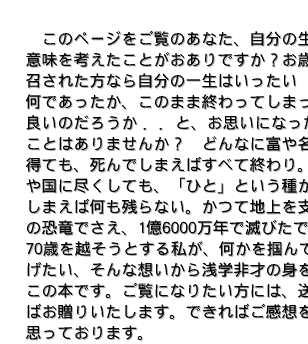 このページをご覧のあなた、自分の生
意味を考えたことがおありですか？お歳
召された方なら自分の一生はいったい
何であったか、このまま終わってしまっ
良いのだろうか．．と、お思いになった
ことはありませんか？　どんなに富や名
得ても、死んでしまえばすべて終わり。
や国に尽くしても、「ひと」という種が
しまえば何も残らない。かつて地上を支
の恐竜でさえ、1億6000万年で滅びたで
70歳を越そうとする私が、何かを掴んで
げたい、そんな想いから浅学非才の身を
この本です。ご覧になりたい方には、送
ばお贈りいたします。できればご感想を
思っております。